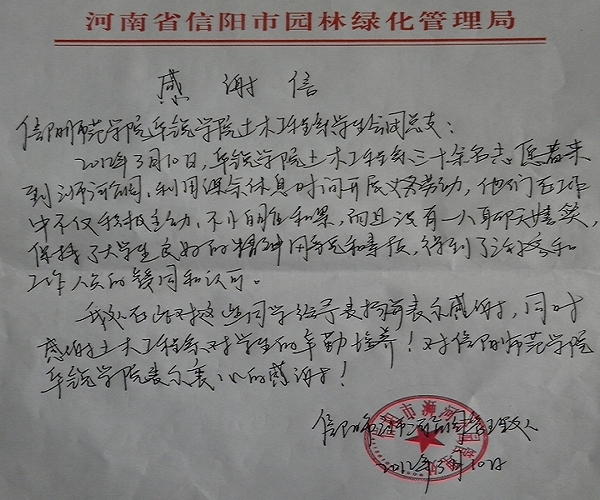 河南省信阳市园林绿化管理局
感谢信
信阳师范学院华锐学院土木工程系学生会团总支：
2012年3月10日，华锐学院土木工程系三十余名志愿者来
到浉河公园，利用课余休息时间开展义务劳动，他们在工作
中不仅积极主动、不怕脏和累，而且没有一人聊天嬉笑，
保持了大学生良好的精神面貌和素质，得到了游客和
工作人员的赞同和认可。
我处在此对这些同学给予表扬并表示感谢，同时
感谢土木工程系对学生的辛勤培养！对信阳师范学院
华锐学院表示衷心的感谢！
信阳市浉河公园管理
2012年3月10日